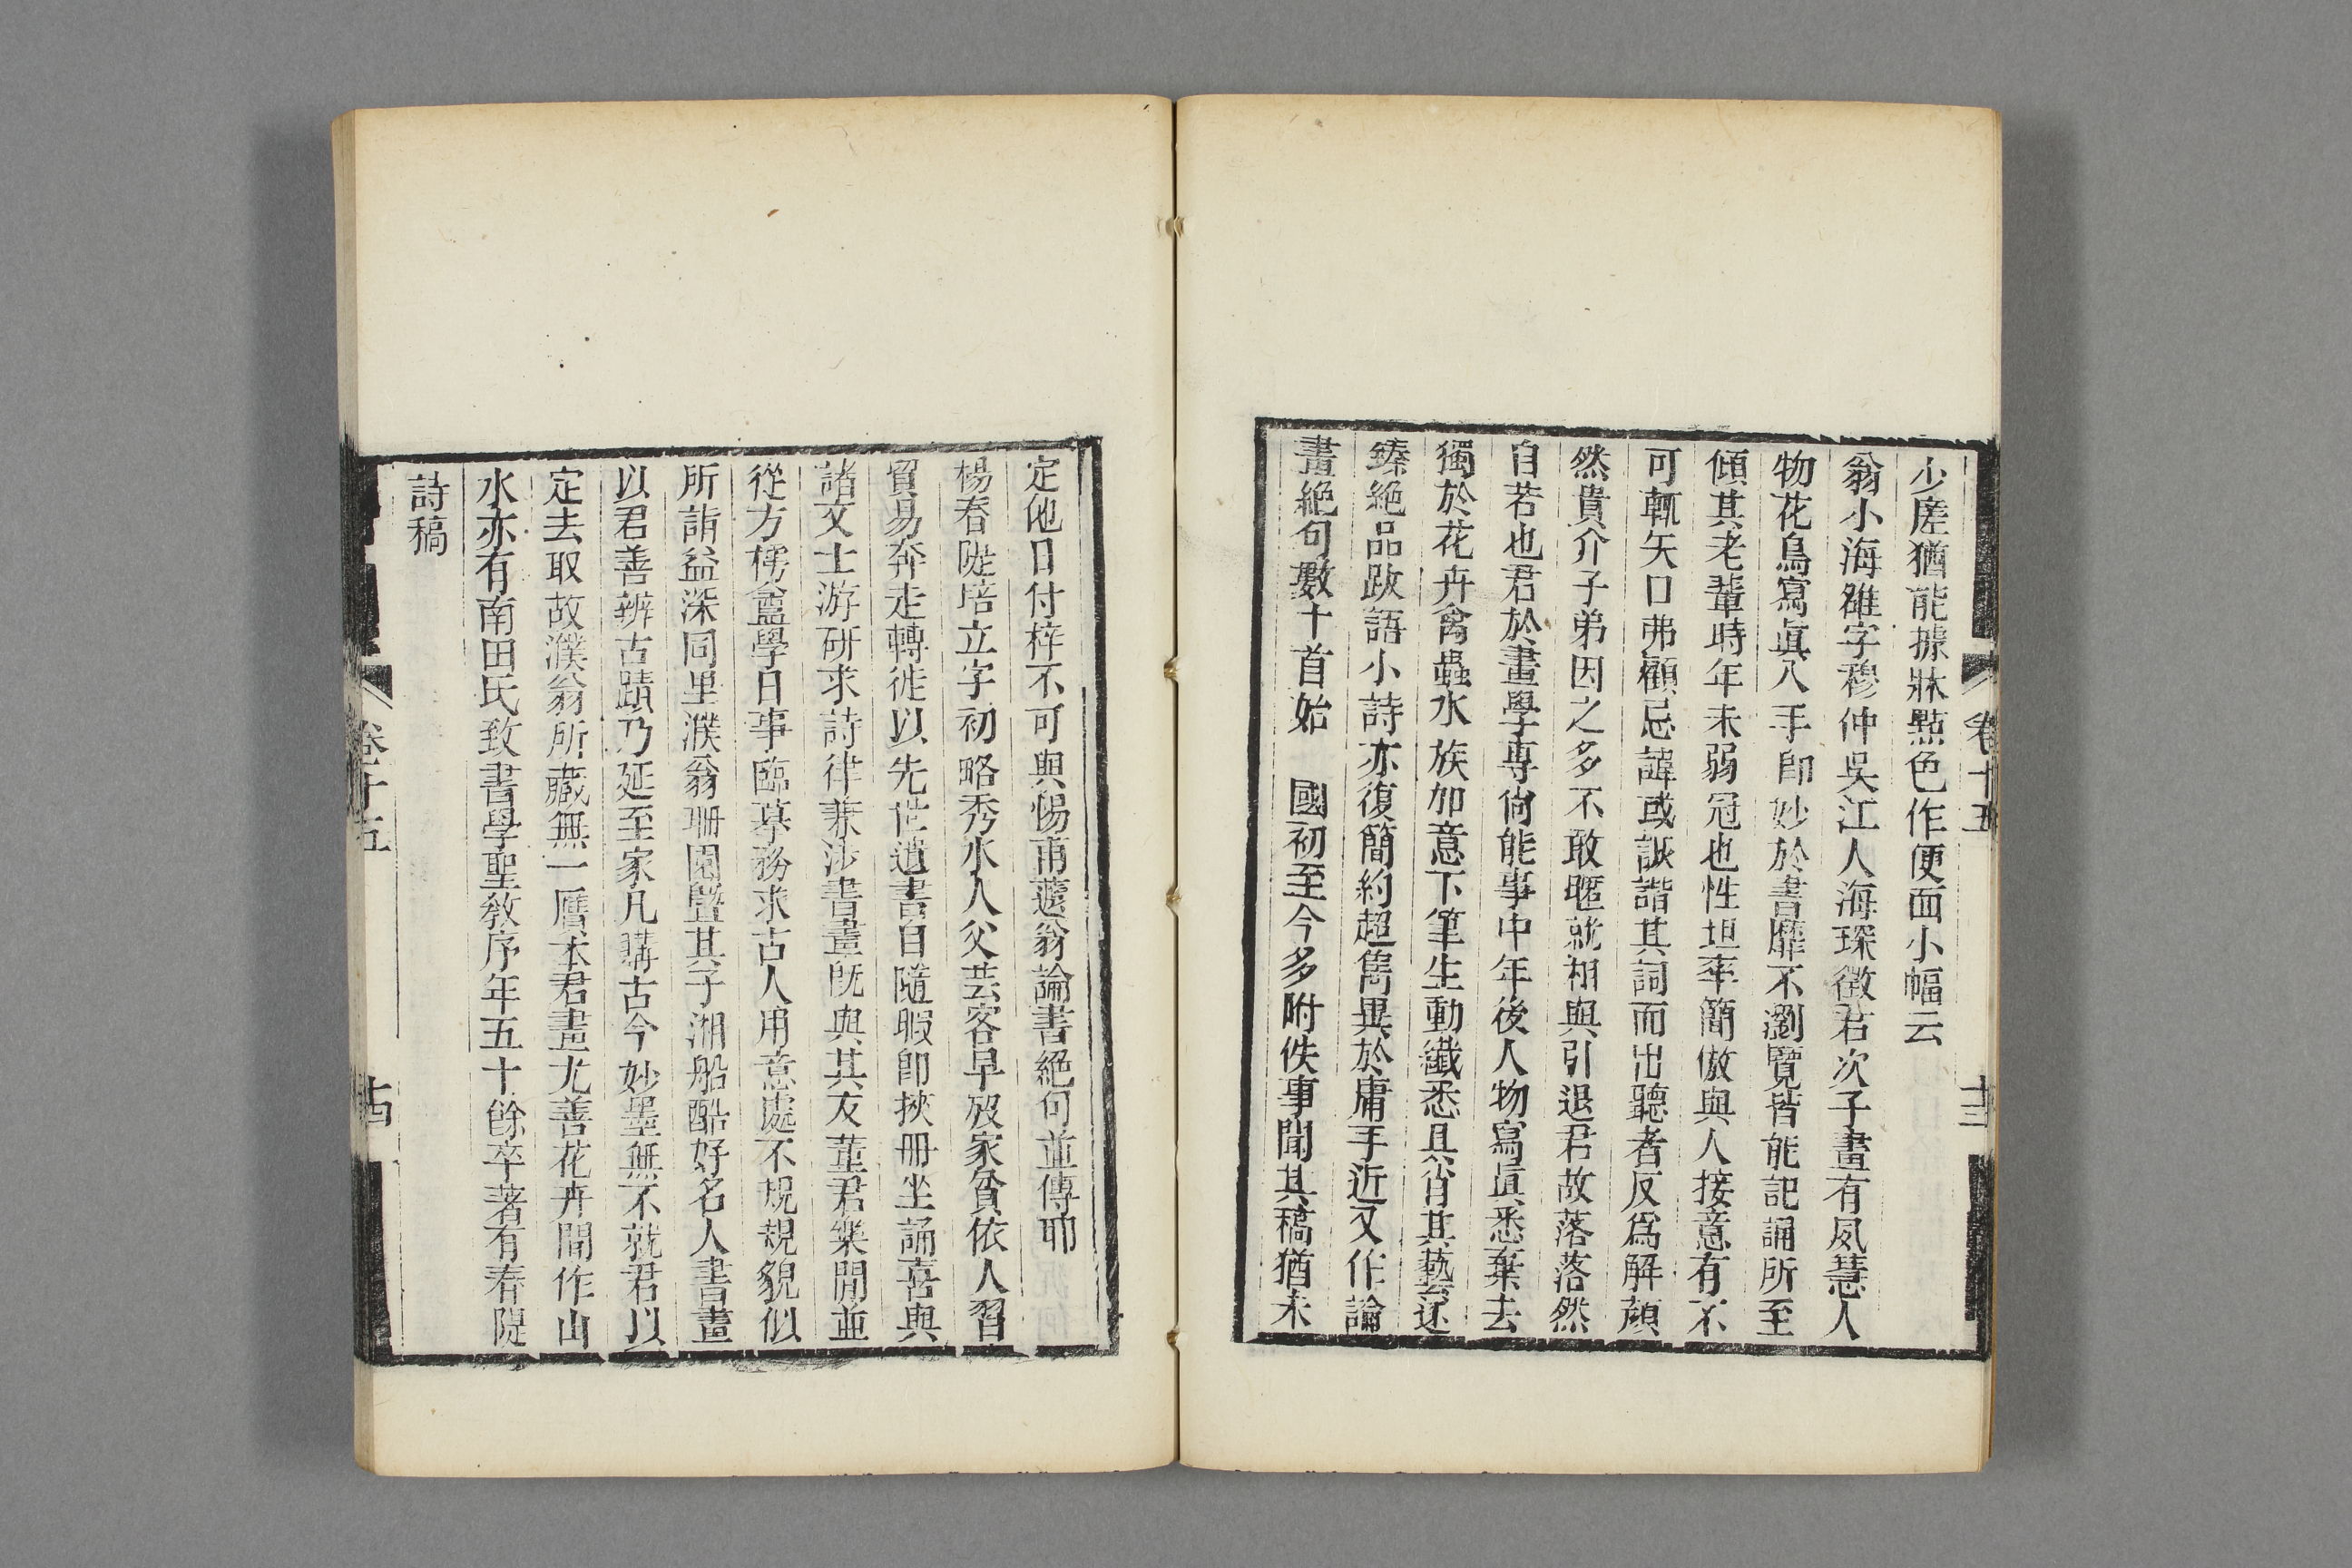 少瘥猶能據牀㸃色作便面小幅云
翁小海雒字穆仲吳江人海琛徵君次子畫有夙慧人
物花鳥寫眞入手即妙於書靡不瀏覽皆能記誦所至
傾其老輩時年未弱冠也性坦率簡傲與人接意有不
可輒矢口弗顧忌諱或詼諧其詞而出聽者反爲解頤
然貴介子弟因之多不敢暱就相與引退君故落落然
自若也君於畫學專尙能事中年後人物寫眞悉棄去
獨於花卉禽蟲水族加意下筆生動纖悉具肖其藝遂
臻絕品跋語小詩亦復簡約超雋異於庸手近又作論
畫絕句數十首始 國初至今多附佚事聞其稿猶未
卷十五
十三
定他日付梓不可與惕甫薳翁論書絕句並傳耶
楊春隄培立字初略秀水人父芸客早歿家貧依人習
貿易奔走轉徙以先世遺書自隨暇即挾冊坐誦喜與
諸文士游研求詩律兼涉書畫旣與其友董君樂閒並
從方樗盦學日事臨摹務求古人用意處不規規貌似
所詣益深同里濮翁珊園曁其子湘船酷好名人書畫
以君善辨古蹟乃延至家凡購古今妙墨無不就君以
定去取故濮翁所藏無一贋本君畫尤善花卉間作山
水亦有南田氏致書學聖敎序年五十餘卒著有春隄
詩稿
卷十五
十四